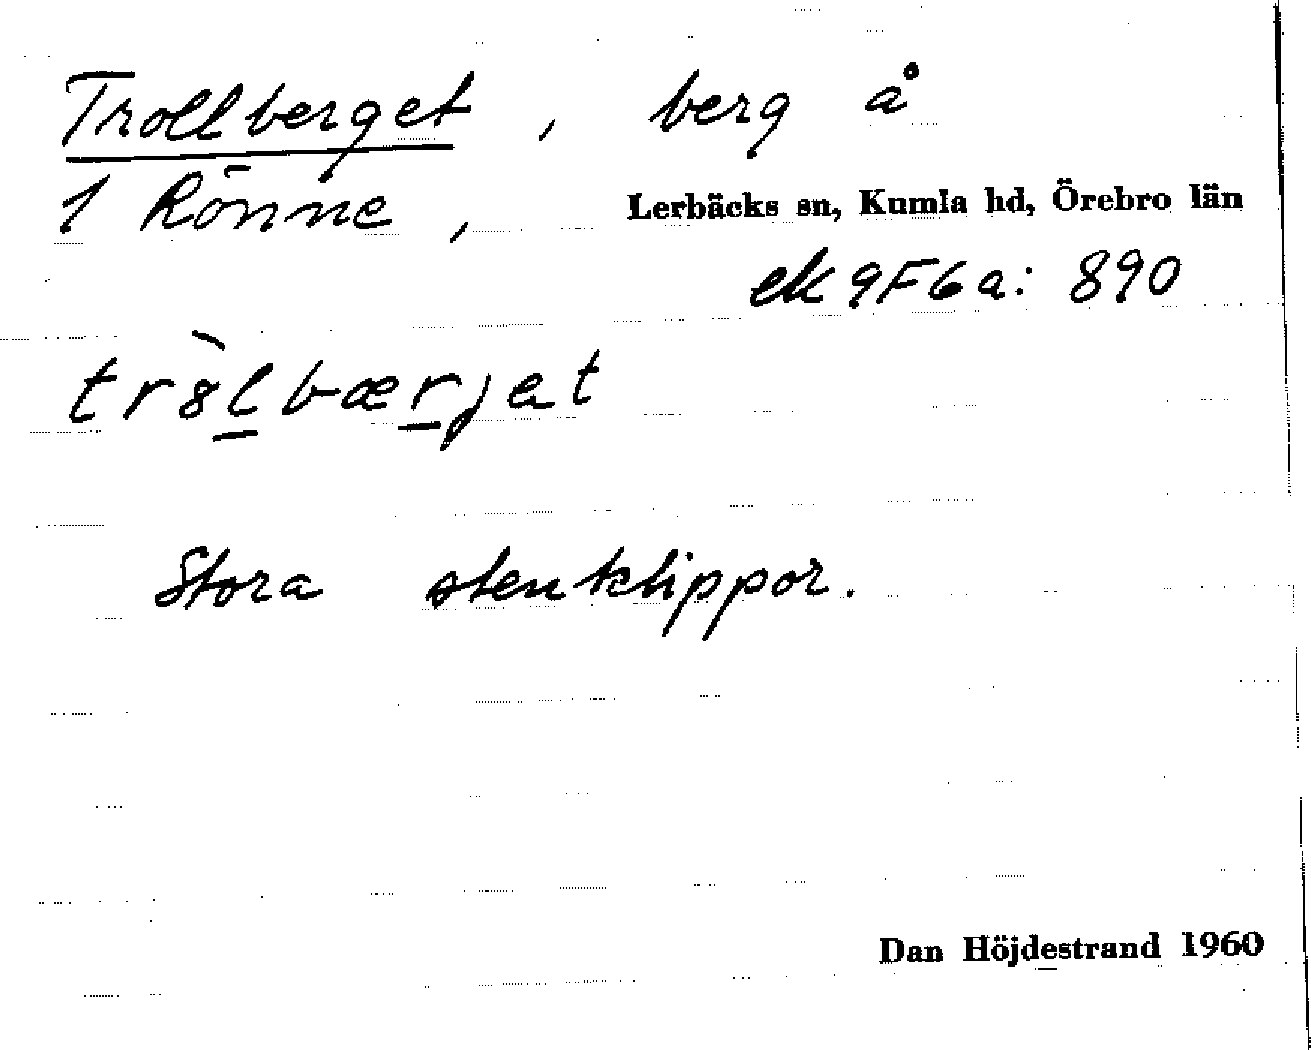 Trollberget, berg å
1 Rönne, Lerbäcks sn, Kumla hd, Örebro län
ek 9F6a: 890
trȣ̀l̲bær̲jet
Stora stenklippor.
Dan Höjdestrand 1960